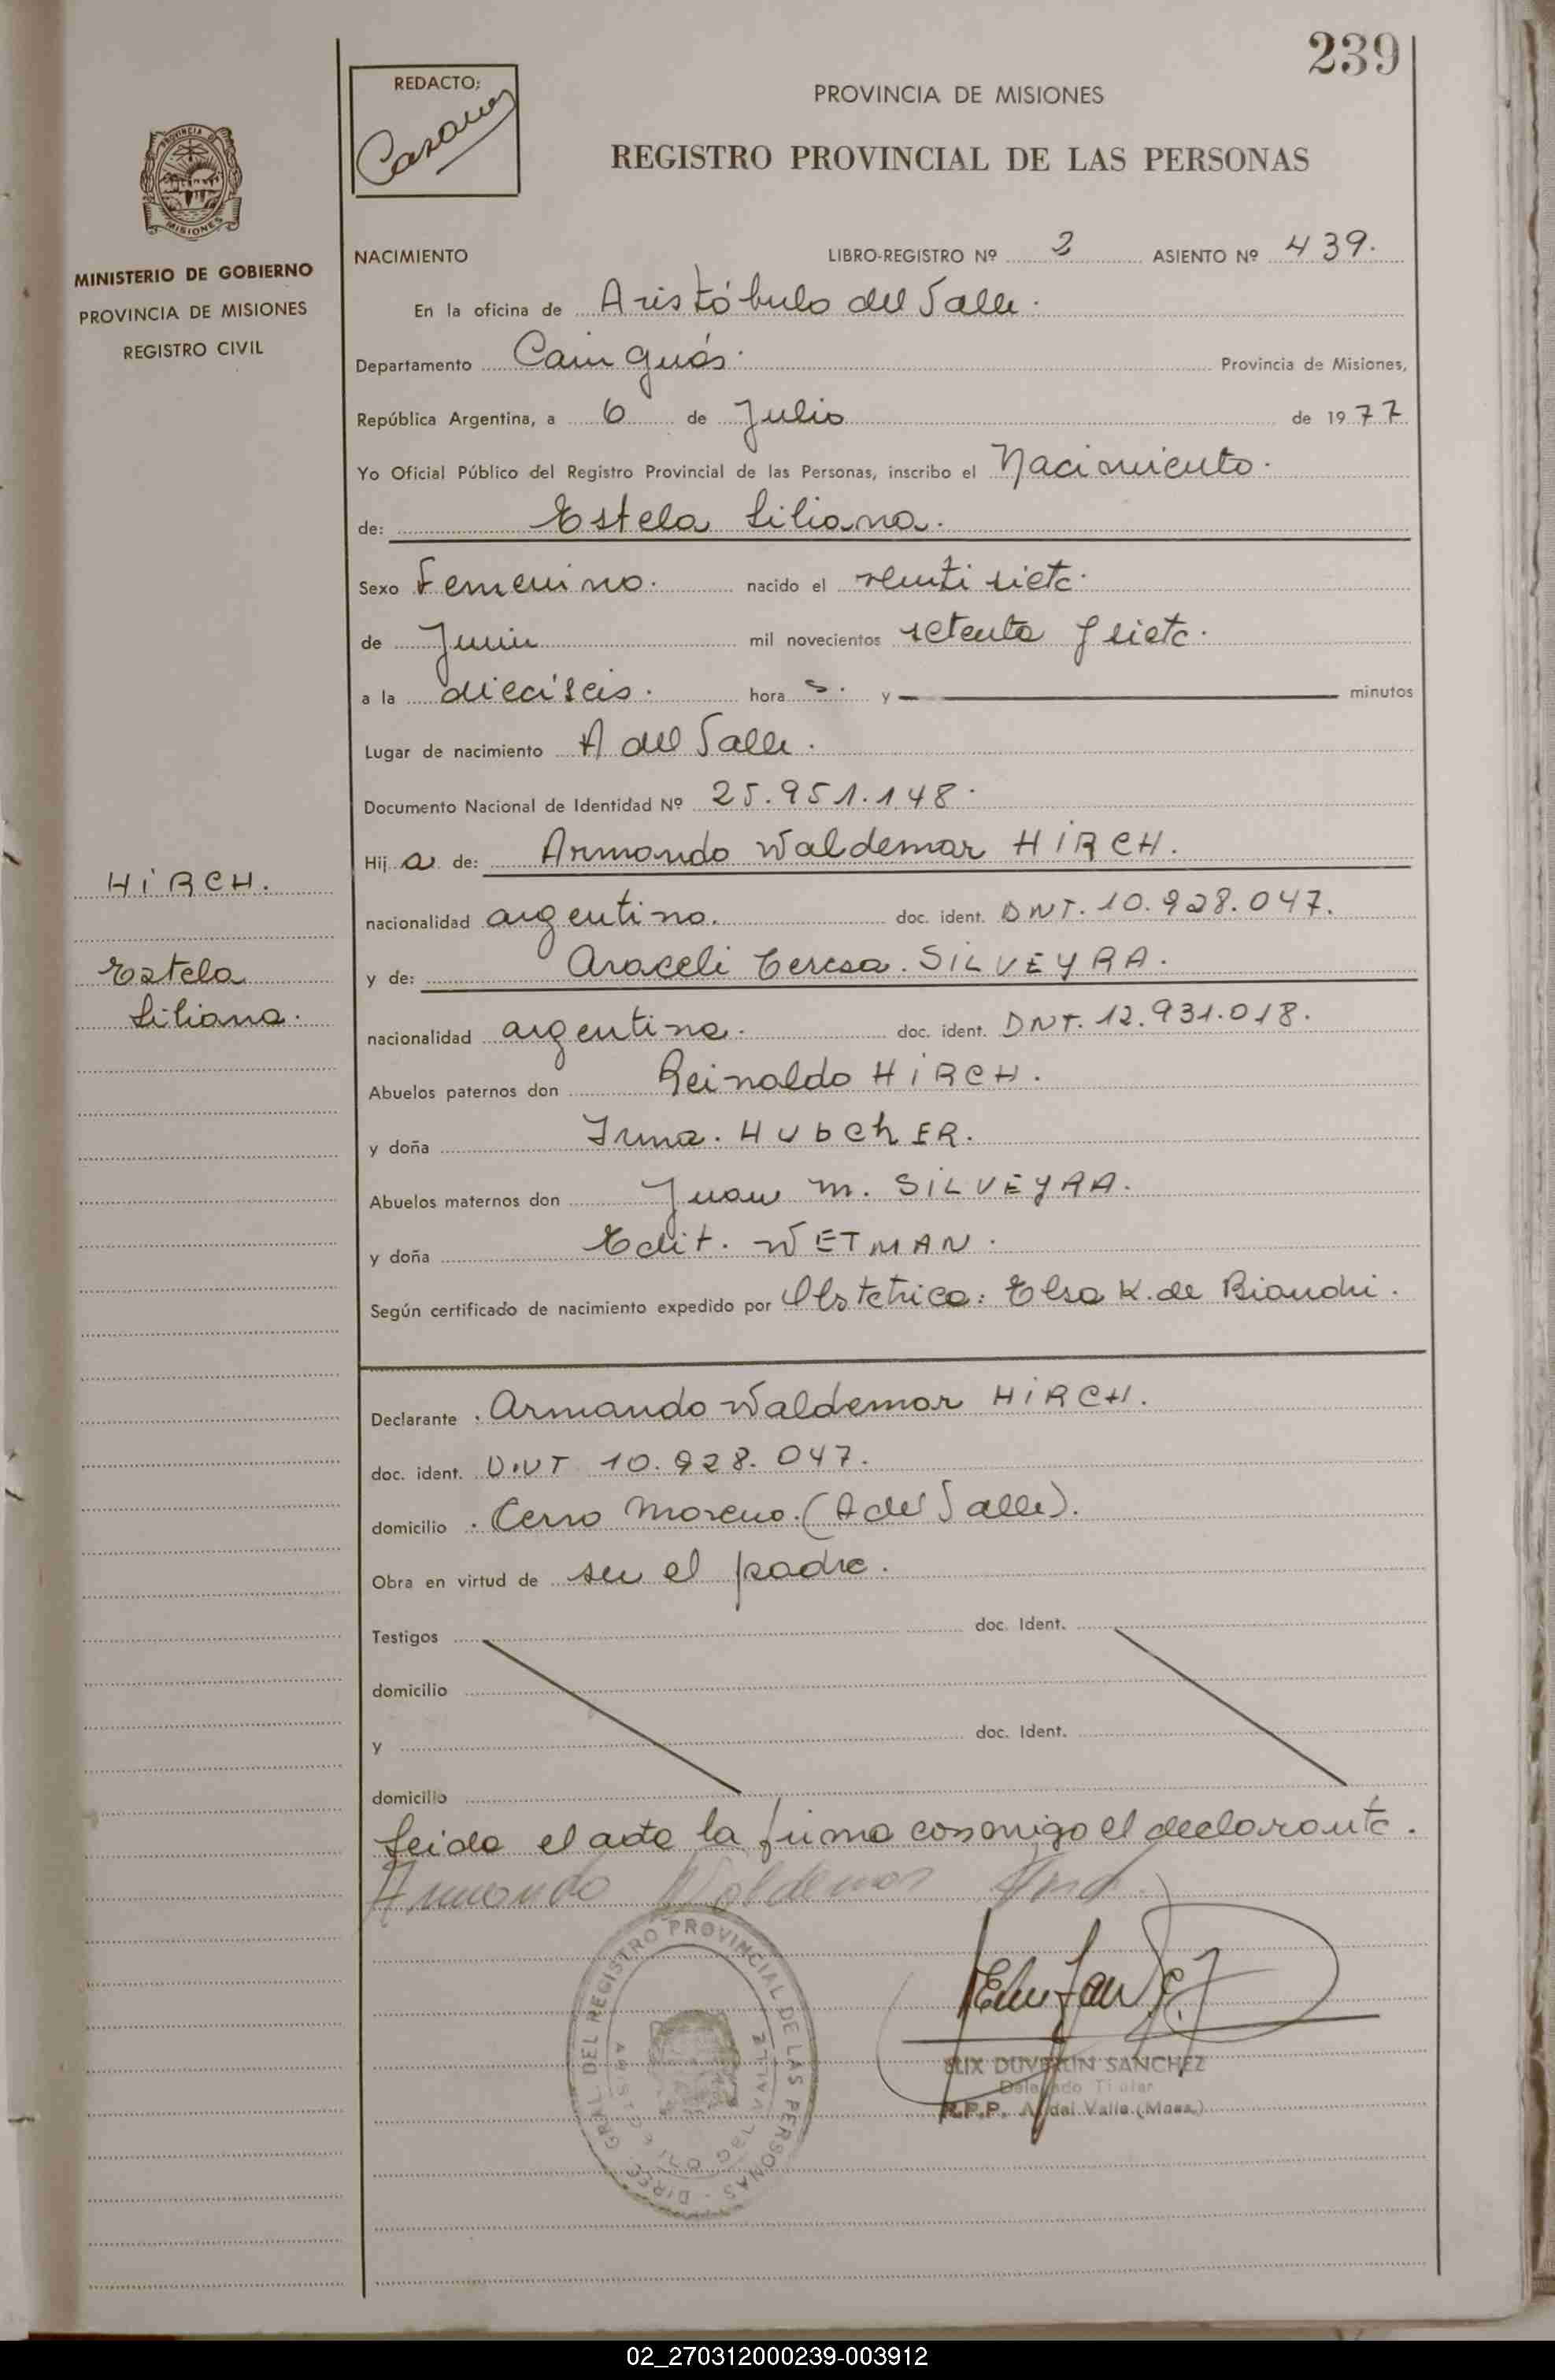 239
REDACTO:
PROVINCIA DE MISIONES
REGISTRO PROVINCIAL DE LAS PERSONAS
PROVINCIA DE
MISIONES
MINISTERIO DE GOBIERNO
PROVINCIA DE MISIONES
REGISTRO CIVIL
NACIMIENTO LIBRO-REGISTRO Nº 2 ASIENTO Nº 439.
En la oficina de Aristóbulo del Valle.
Departamento Cainguás. Provincia de Misiones,
República Argentina, a 6 de Julio de 1977
Yo Oficial Público del Registro Provincial de las Personas, inscribo el Nacimiento.
de: Estela Liliana.
Sexo Femenino. nacido el veintisiete.
de Junio mil novecientos setenta y siete.
a la dieciseis. hora s. y — minutos
Lugar de nacimiento A del Valle.
Documento Nacional de Identidad Nº 25.951.148.
Hij a de: Armando Waldemar HIRCH.
nacionalidad argentino. doc. ident. DNT. 10.928.047.
y de: Araceli Teresa. SILVEYRA.
nacionalidad argentina. doc. ident. DNT. 12.931.018.
Abuelos paternos don Reinaldo HIRCH.
y doña Irma. HUbChER.
Abuelos maternos don Juan M. SILVEYRA.
y doña Edit. WETMAN.
Según certificado de nacimiento expedido por Obstetrica: Elsa K. de Bianchi.
HIRCH.
Estela
Liliana.
Declarante Armando Waldemar HIRCH.
doc. ident. DNT 10.928.047.
domicilio Cerro Moreno. (A del Valle).
Obra en virtud de ser el padre.
Testigos doc. Ident.
domicilio
y doc. Ident.
domicilio
Leida el acta la firma conmigo el declarante.
Armando Waldemar
DIREC. GRAL. DEL REGISTRO PROVINCIAL DE LAS PERSONAS
DUVERLIN SANCHEZ
Delegado Titular
R.P.P. A. del Valle (Mnes.)
02_270312000239-003912